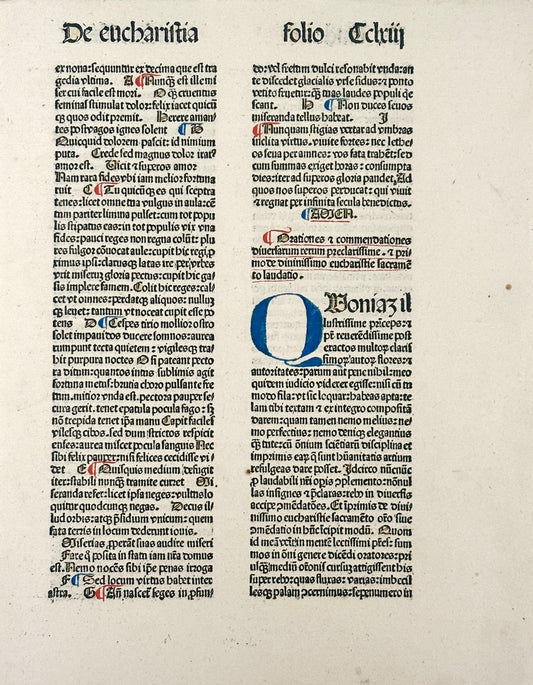 De eucharistia folio Cclxiij
ex nona: sequuntur ex decima que est tra
gedia vltima. A ¶ Nunq̃ est ille mi
ser cui facile est mori. O q̃ cruentus
femina stimulat dolor: felix iacet quicũ
q̃s quos odit premit. Herere aman⸗
tes postvagos ignes solent ¶ B
Quicquid dolorem pascit: id nimium
puta. Crede sed magnus dolor irat⁹
amor est. Uicit & superos amor
Nam rara fides vbi iam melior fortuna
ruit C ¶ Tu quicũq̃ es qui sceptra
tenes: licet omne tua vulgus in aula: cẽ
tum pariter limina pulset: cum tot popu
lis stipatus eas: in tot populis vix vna
fides: pauci reges non regna colũt: plu
res fulgor cõuocat aule: cupit hic regi p̱
ximus ipsi: clarusq̃ latas ire per vrbes
vrit miserũ gloria pectus: cupit hic ga⸗
sis implere famem. Colit hic reges: cal⸗
cet vt omnes: perdatq̃ aliquos: nullũ
q̃ leuet: tantum vt noceat cupit esse po
tens D ¶ Cespes tirio mollior ostro
solet impauidos ducere somnos: aurea
rumpunt tecta quietem: vigilesq̃ tra⸗
hit purpura noctes O si pateant pecto
ra ditum: quantos intus sublimis agit
fortuna metus: brutia choro pulsante fre
tum. mitior vnda est. pectora pauper se⸗
cura gerit. tenet e patula pocula fago: sz
nõ trepida tenet ip̃a manu Capit faciles
vilesq̃ cibos. sed dum strictos respicit
enses: aurea miscet pocula sanguis Nec
sibi felix pauper: nisi felices cecidisse vi⸗
det E ¶ Quisquis medium defugit
iter: stabili nunq̃ tramite curret Mi
seranda refer: licet ipsa neges: vultus lo
quitur quodcunq̃ negas. Decus il⸗
lud orbis: atq̃ p̃sidium vnicum: quem
fata terris in locum dederunt iouis.
Miserias p̱perãt suas audire miseri
Fare q̃ posita in statu iam nr̃a domus
est. Nemo nocẽs sibi ip̃e penas irroga
F ¶ Sed locum virtus habet inter
astra. G ¶ An nascet̃ seges in p̱fun⸗
do: vel fretum dulci resonabit vnda: an
te discedet glacialis vrse sidus: & ponto
vetito fruetur: cp̃ tuas laudes populi q̃e
scant. H ¶ Non duces seuos
miseranda tellus habeat. I
¶ Nunquam stigias vertar ad vmbras
inclita virtus. viuite fortes: nec lethe⸗
os seua per amnes: vos fata trahẽt: sed
cum summas exiget horas: consumpta
dies: iter ad superos gloria pandet. Ad
quos nos superos perducat: qui viuit
& regnat per infinita secula benedictus.
¶ AMEN.
¶ Orationes & commendationes
diuersarum rerum preclarissime. & pri
mo de diuinissimo eucharistie sacramẽ
to laudatio.
QUoniaz il
lustrissime prĩceps: &
pr̃ reuerẽdissime post
exactos multoꝝ claris
simoꝝ autoꝝ flores: &
autoritates: parum aut pene nihil: meo
quidem iudicio videret̃ egisse: nisi cũ ta
mo de fila: vt sic loquar: habeas apta: te
lam tibi textam & ex integro compositã
darem: quam tamen nemo melius: ne⸗
mo perfectius: nemo deniq̃ elegantius
q̃ tute: cũ omniũ scientiarũ disciplina et
imprimis earꝝ q̃ sunt hũanitatis artium
refulgeas dare posset. Idcirco nũciũc
p̱ laudabili mei opis cp̱lemento: nõnul
las insignes & p̃claras: reb⁹ in diuersis
accipe cp̱mẽdatões. Et in primis de diui
nissimo eucharistie sacramẽto cp̱õ siue
cp̱mẽdatio in hũc incipit modũ. Quom
id mea venit in mente lectissimi p̃res: sum
mos in oñi genere dicẽdi oratores: pri
usq̃ mediũ orõnis cursuz attigissent his
super rebus quas fluxas: varias: imbecil
lesq̃ palam cernimus: sepenumero in